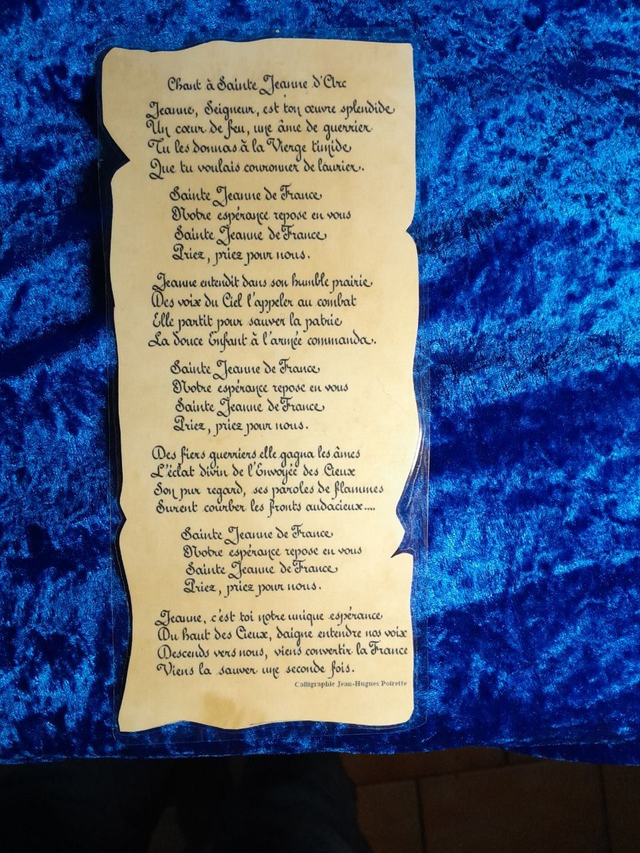 Chant à Sainte Jeanne d'Arc
Jeanne, Seigneur, est ton œuvre splendide
Un cœur de feu, une âme de guerrier
Tu les donnas à la Vierge timide
Que tu voulais couronner de laurier.
Sainte Jeanne de France
Notre espérance repose en vous
Sainte Jeanne de France
Priez, priez pour nous.
Jeanne entendit dans son humble prairie
Des voix du Ciel l'appeler au combat
Elle partit pour sauver la patrie
La douce Enfant à l'armée commanda.
Sainte Jeanne de France
Notre espérance repose en vous
Sainte Jeanne de France
Priez, priez pour nous.
Des fiers guerriers elle gagna les âmes
L'éclat divin de l'Envoyée des Cieux
Son pur regard, ses paroles de flammes
Surent courber les fronts audacieux....
Sainte Jeanne de France
Notre espérance repose en vous
Sainte Jeanne de France
Priez, priez pour nous.
Jeanne, c'est toi notre unique espérance
Du haut des Cieux, daigne entendre nos voix
Descends vers nous, viens convertir la France
Viens la sauver une seconde fois.
Calligraphie Jean-Hugues Poirette